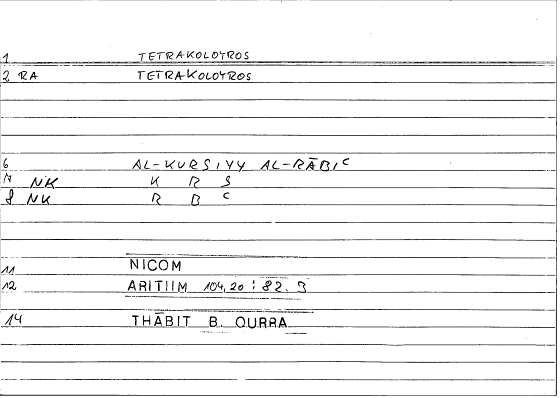 1 TETRAKOLOYROS
2 RA TETRAKOLOYROS
6 AL-KURSIYY AL-RĀBIC
7 NK K R S
8 NK R B C
11 NICOM
12 ARITIIM 104,20 : 82. 3
14 THĀBIT B. QURRA